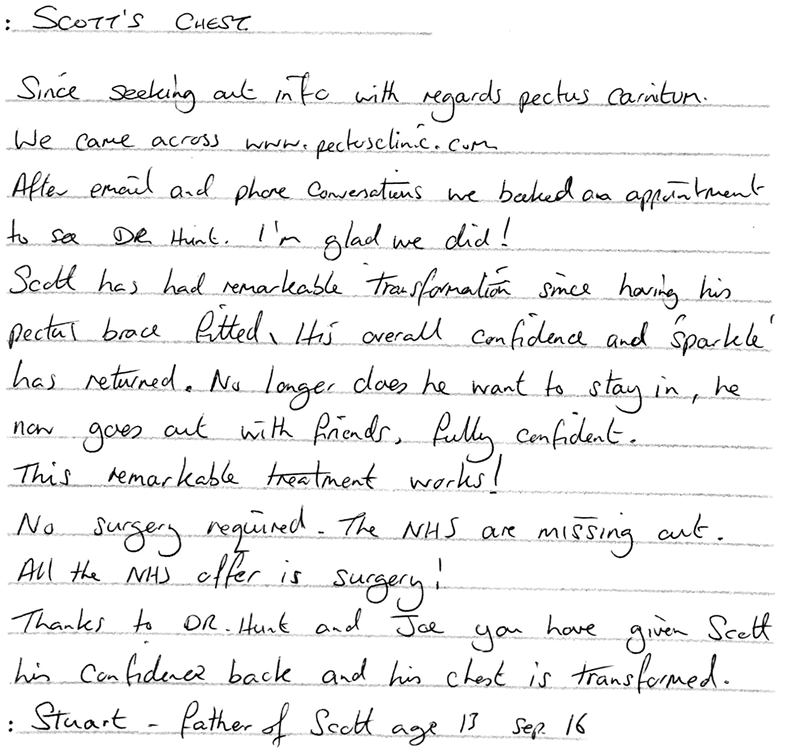 : SCOTT'S CHEST.
Since seeking out info with regards pectus carnitum.
We came across www.pectusclinic.com
After email and phone conversations we booked an appointment
to see DR Hunt. I'm glad we did!
Scott has had remarkable transformation since having his
pectus brace fitted. His overall confidence and 'sparkle'
has returned. No longer does he want to stay in, he
now goes out with friends, fully confident.
This remarkable treatment works!
No surgery required. The NHS are missing out.
All the NHS offer is surgery!
Thanks to DR. Hunt and Joe you have given Scott
his confidence back and his chest is transformed.
: Stuart - father of Scott age 13 Sep. 16